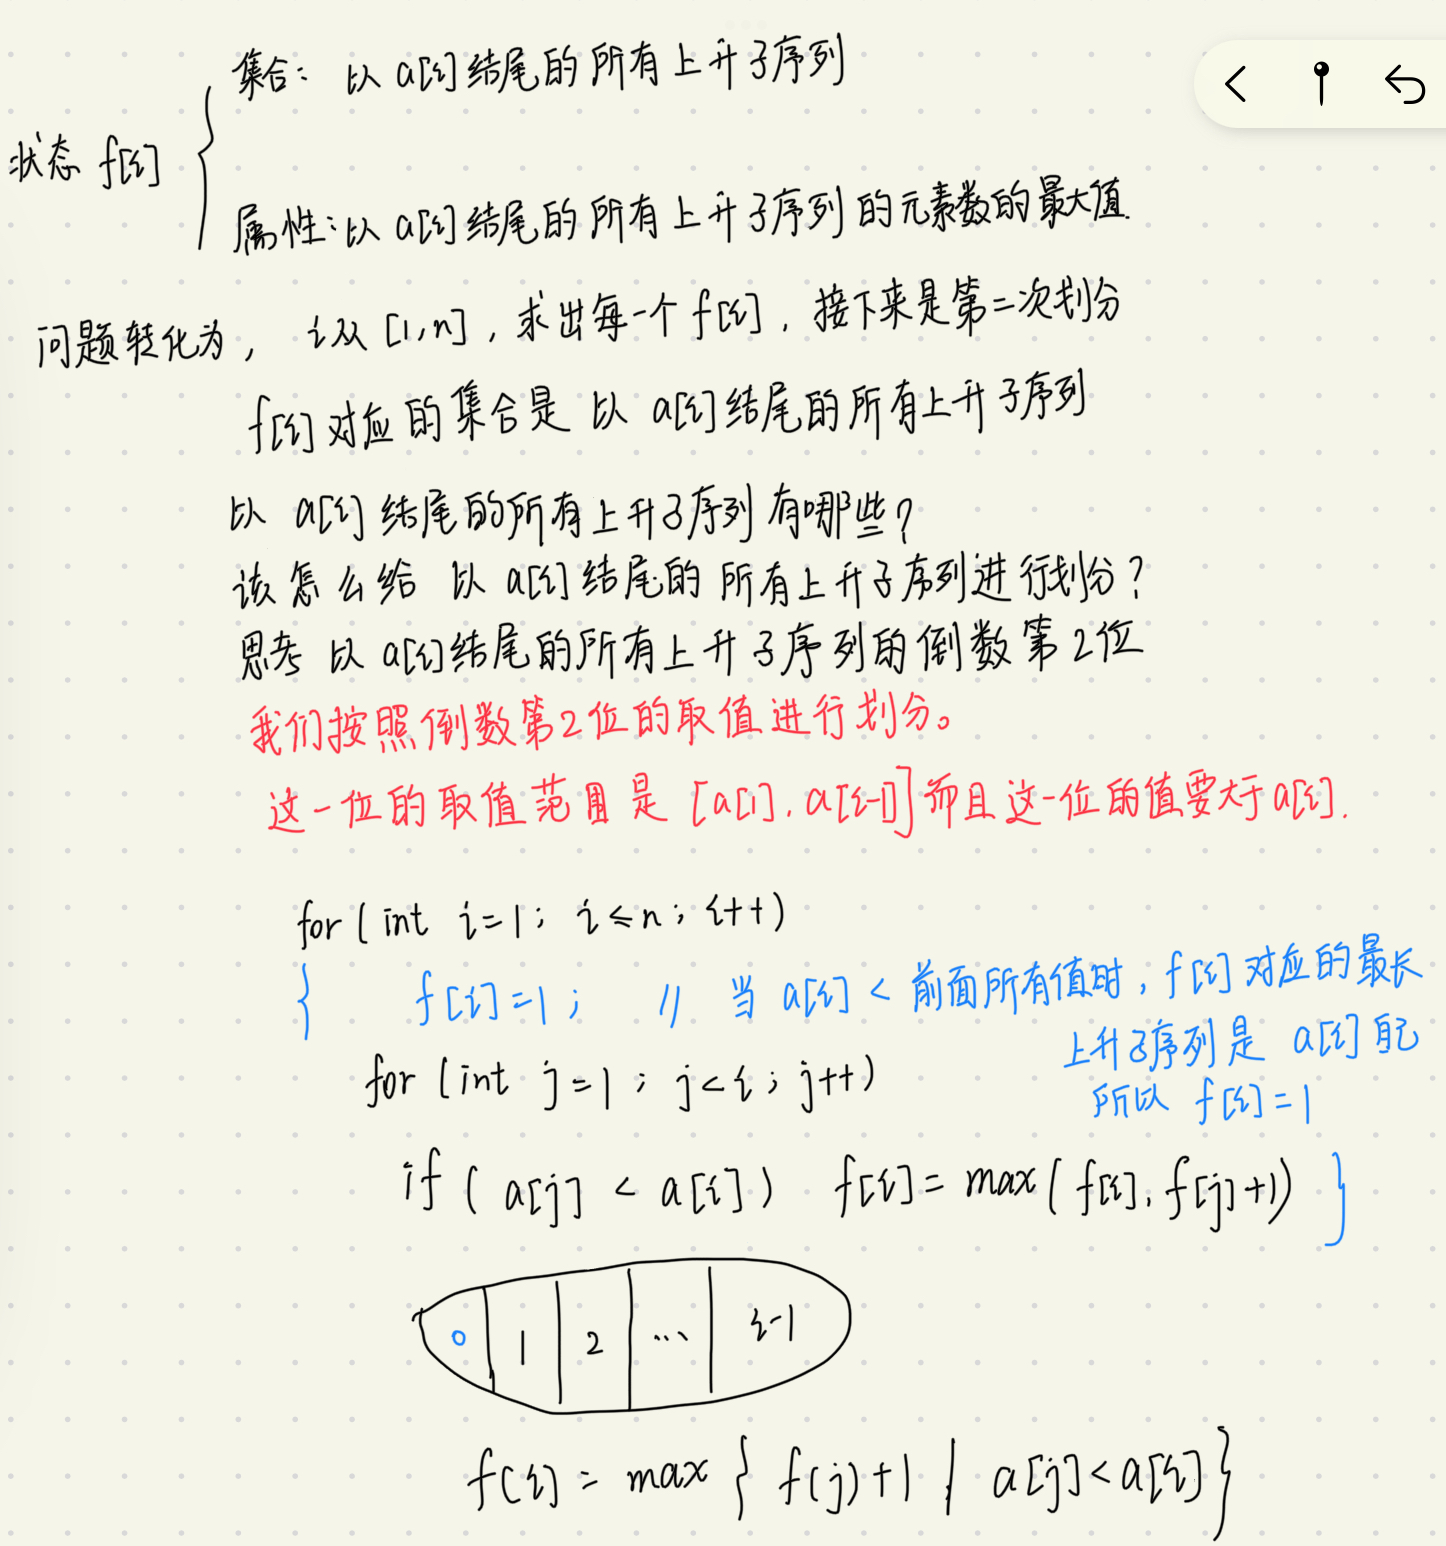 集合: 以 a[i] 结尾的所有上升子序列
状态 f[i]
属性: 以 a[i] 结尾的所有上升子序列的元素数的最大值.
问题转化为, i从 [1,n], 求出每一个 f[i], 接下来是第二次划分
f[i] 对应的集合是 以 a[i] 结尾的所有上升子序列
以 a[i] 结尾的所有上升子序列 有哪些?
该怎么给 以 a[i] 结尾的 所有上升子序列进行划分?
思考 以 a[i] 结尾的所有上升子序列的倒数第2位
我们按照倒数第2位的取值进行划分。
这一位的取值范围是 [a[1], a[i-1]] 而且这一位的值要大于a[i].
for ( int i=1; i≤n; i++)
{ f[i]=1; // 当 a[i] < 前面所有值时, f[i] 对应的最长
上升子序列是 a[i] 自己
所以 f[i]=1
for (int j=1; j<i; j++)
if ( a[j] < a[i]) f[i] = max( f[i], f[j]+1) }
0 1 2 ... i-1
f(i) = max { f(j)+1 | a[j]<a[i] }